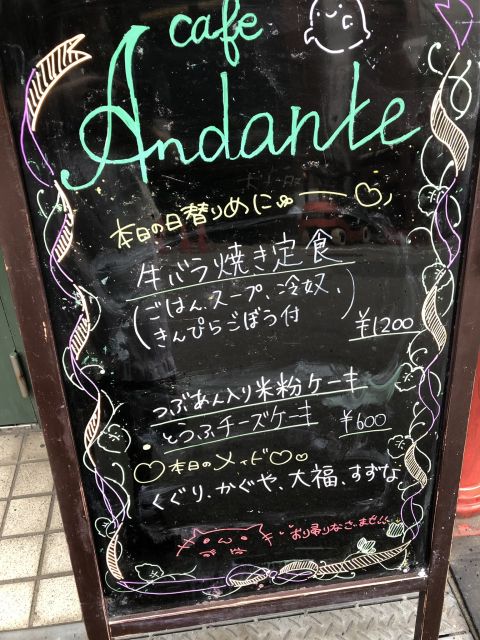 cafe
Andante
本日の日替りめにゅー♡
牛バラ焼き定食
(ごはん、スープ、冷奴、
きんぴらごぼう付)
¥1200
つぶあん入り米粉ケーキ
とうふチーズケーキ ¥600
♡本日のメイド♡♡
くぐり、かぐや、大福、すずな
お帰りなさいませ